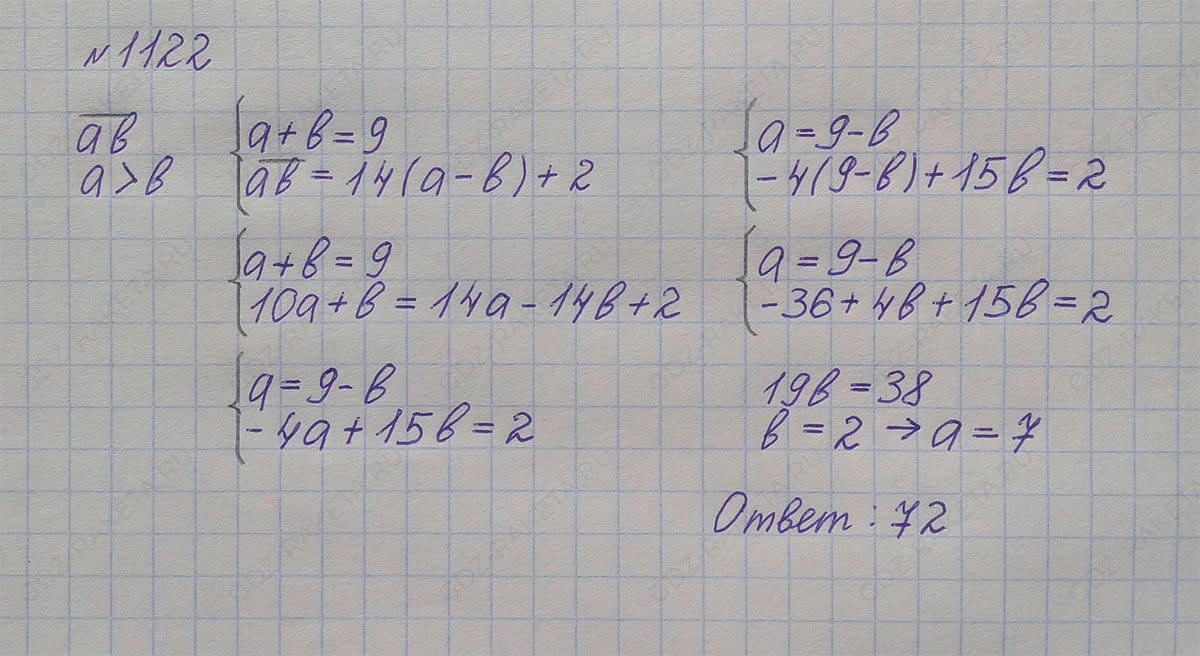 №1122
ab
a > b
a + b = 9
ab = 14(a - b) + 2
a + b = 9
10a + b = 14a - 14b + 2
a = 9 - b
-4a + 15b = 2
a = 9 - b
-4(9 - b) + 15b = 2
a = 9 - b
-36 + 4b + 15b = 2
19b = 38
b = 2 → a = 7
Ответ: 72